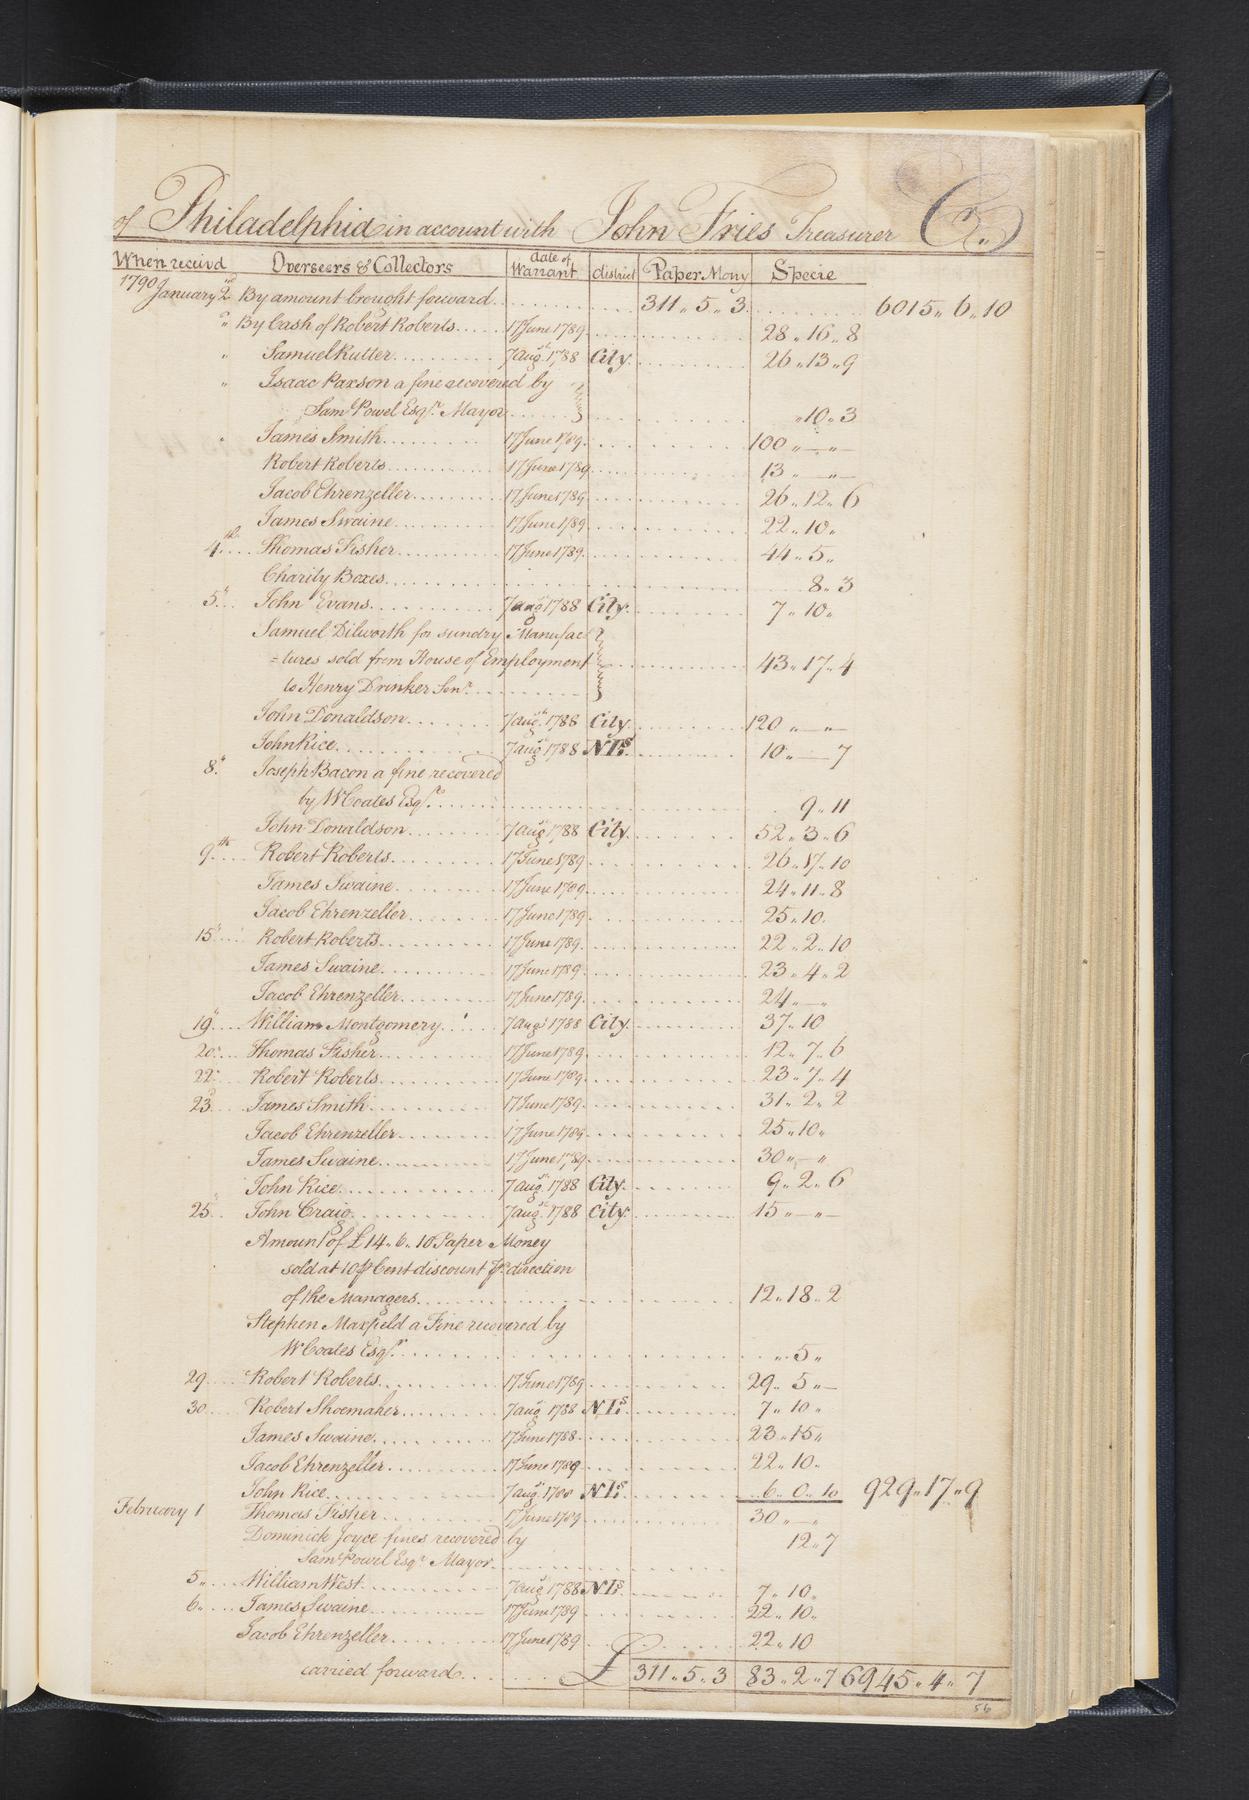 of Philadelphia in account with John Fries Treasurer Cr..
When receivd Overseers & Collectors date of Warrant district Paper Mony Specie
1790
January 2d By amount brought forward 311 .. 5 .. 3 6015 .. 6 .. 10
" By Cash of Robert Roberts 17 June 1789 28 .. 16 .. 8
" Samuel Rutter 7 augt 1788 City 26 .. 13 .. 9
" Isaac Paxson a fine recovered by
Saml Powel Esqr. Mayor .. 10 .. 3
" James Smith 17 June 1789 100 .. — .. —
Robert Roberts 17 June 1789 13 .. — .. —
Jacob Ehrenzeller 17 June 1789 26 .. 12 .. 6
James Swaine 17 June 1789 22 .. 10 ..
4th Thomas Fisher 17 June 1789 44 .. 5 ..
Charity Boxes 8 .. 3
5" John Evans 7 augt 1788 City 7 .. 10 ..
Samuel Dilworth for sundry Manufac
=tures sold from House of Employment 43 .. 17 .. 4
to Henry Drinker Senr.
John Donaldson 7 augt 1788 City 120 .. — .. —
John Rice 7 augt 1788 N Ls 10 .. — 7
8" Joseph Bacon a fine recovered
by W Coates Esqr. 9 .. 11
John Donaldson 7 augt 1788 City 52 .. 3 .. 6
9th Robert Roberts 17 June 1789 26 .. 17 .. 10
James Swaine 17 June 1789 24 .. 11 .. 8
Jacob Ehrenzeller 17 June 1789 25 .. 10
15" Robert Roberts 17 June 1789 22 .. 2 .. 10
James Swaine 17 June 1789 23 .. 4 .. 2
Jacob Ehrenzeller 17 June 1789 24 .. — ..
19" William Montgomery 7 augt 1788 City 37 .. 10
20" Thomas Fisher 17 June 1789 12 .. 7 .. 6
22" Robert Roberts 17 June 1789 23 .. 7 .. 4
23 James Smith 17 June 1789 31 .. 2 .. 2
Jacob Ehrenzeller 17 June 1789 25 .. 10 ..
James Swaine 17 June 1789 30 .. — ..
John Rice 7 augt 1788 City 9 .. 2 .. 6
25 John Craig 7 augt 1788 City 15 .. — .. —
Amount of £14 .. 6 .. 10 Paper Money
sold at 10 ⅌ Cent discount ⅌ direction
of the Managers 12 .. 18 .. 2
Stephen Maxfield a Fine recovered by
W Coates Esqr. .. 5 ..
29 Robert Roberts 17 June 1789 29 .. 5 .. —
30 Robert Shoemaker 7 augt 1788 N Ls 7 .. 10 ..
James Swaine 17 June 1788 23 .. 15 ..
Jacob Ehrenzeller 17 June 1789 22 .. 10 ..
John Rice 7 augt 1788 N Ls 6 .. 0 .. 10 929 .. 17 .. 9
February 1 Thomas Fisher 17 June 1789 30 .. — ..
Dominick Joyce fines recovered by 12 .. 7
Saml Powel Esqr Mayor
5 .. William West 7 augt 1788 N Ls 7 .. 10 ..
6 .. James Swaine 17 June 1789 22 .. 10 ..
Jacob Ehrenzeller 17 June 1789 22 .. 10
carried forward £ 311 .. 5 .. 3 83 .. 2 .. 7 6945 .. 4 .. 7
56